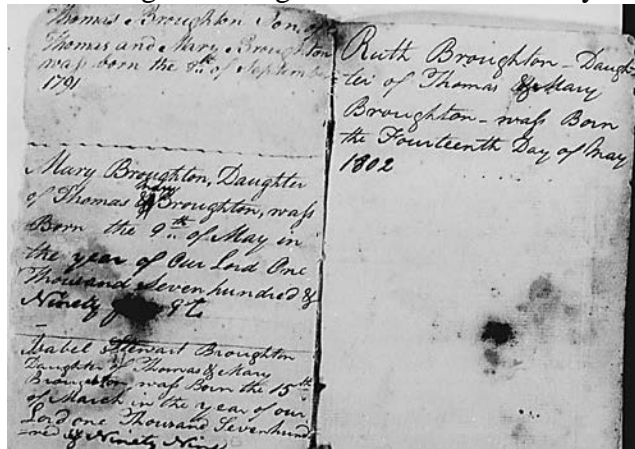 Thomas Broughton Son of
Thomas and Mary Broughton
wafs born the 8th of September
1791
Mary Broughton, Daughter
Mary
of Thomas & Broughton, wafs
Born the 9th of May in
the year of Our Lord One
Thousand Seven hundred &
Ninety
Isabel Stewart Broughton
Daughter of Thomas & Mary
Broughton wafs Born the 15th
of March in the year of our
Lord one Thousand Sevenhund
red & Ninety Nine
Ruth Broughton - Daugh-
ter of Thomas & Mary
Broughton - wafs Born
the Fourteenth Day of May
1802